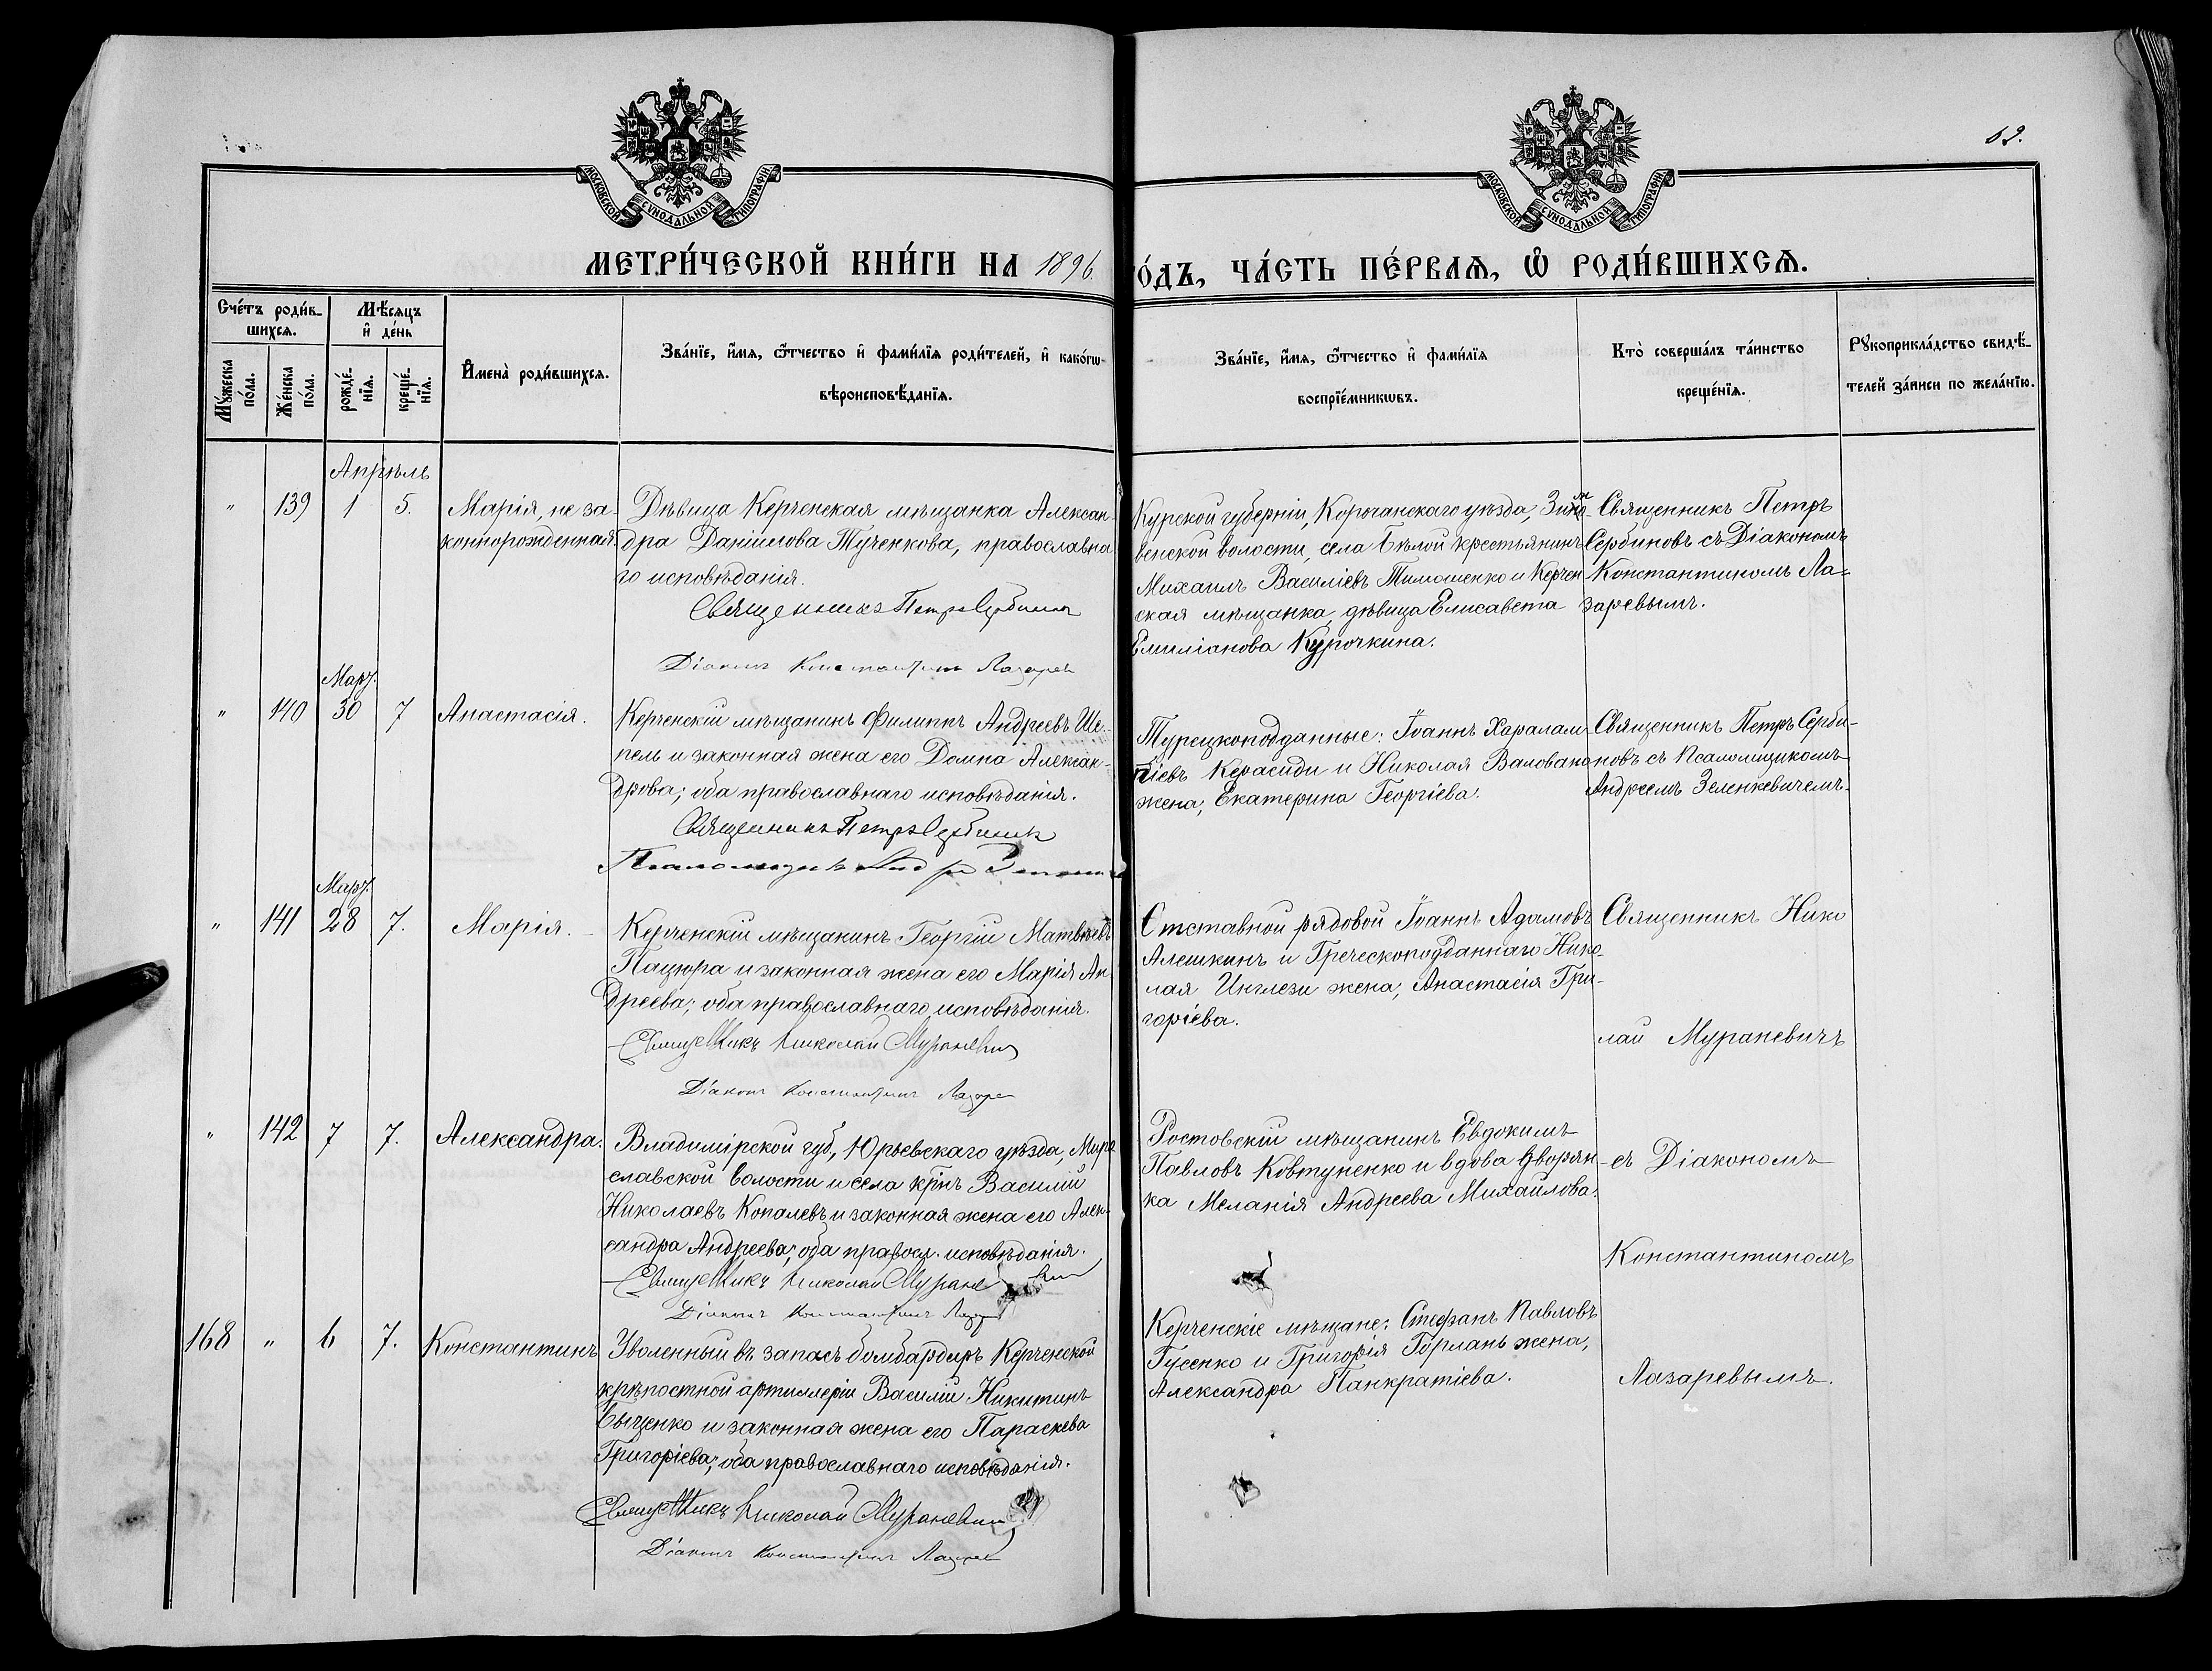 62.
МОСКОВСКОЙ СѴНОДАЛЬНОЙ ТИПОГРАФІИ
МОСКОВСКОЙ СѴНОДАЛЬНОЙ ТИПОГРАФІИ
МЕТРИ́ЧЕСКОЙ КНИ́ГИ НА 1896
О́ДЪ, ЧА́СТЬ ПЕ́РВАѦ, Ѡ҆ РОДИ́ВШИХСѦ.
Сче́тъ роди́в-
шихсѧ.
Мꙋ́жеска
по́ла.
Же́нска
по́ла.
Мѣ́сѧцъ
и҆ де́нь
рожде́-
нїѧ.
креще́-
нїѧ.
И҆мена̀ роди́вшихсѧ.
Зва́нїе, и҆́мѧ, ѻ҆́тчество и҆ фами́лїѧ роди́телей, и҆ како́гѡ
вѣроисповѣ́данїѧ.
Зва́нїе, и҆́мѧ, ѻ҆́тчество и҆ фами́лїѧ
воспрїе́мникѡвъ.
Кто̀ соверша́лъ та́инство
креще́нїѧ.
Рꙋкоприкла́дство свидѣ́-
телей за́писи по жела́нїю.
Апрѣль
" 139 1 5.
Марія, не за-
коннорожденная.
Дѣвица Керченская мѣщанка Алексан-
дра Даніилова Тученкова, православна
го исповѣданія.
Священникъ Петръ Сербиновъ
Діаконъ Константинъ Лазарев
Курской губерніи, Корочанскаго уѣзда,
венской волости, села Бѣлой крестьянинъ
Михаилъ Василіевъ Тимошенко и Керчен
ская мѣщанка, дѣвица Елисавета
Емиліанова Курочкина.
Священникъ Петръ
Сербиновъ съ Діакономъ
Константиномъ Ла=
заревымъ.
Март.
" 140 30 7
Анастасія.
Керченскій мѣщанинъ Филиппъ Андреевъ Ше-
пель и законная жена его Домна Алексан-
дрова; оба православнаго исповѣданія.
Священникъ Петръ Сербиновъ
Псаломщикъ
Турецкоподданные: Іоаннъ Харалам-
піевъ Керасиди и Николая Валована
жена, Екатерина Георгіева.
Священникъ Петръ Серби-
новъ съ Псаломщикомъ
Андреемъ Зеленкевичемъ.
Март.
" 141 28 7.
Марія.
Керченскій мѣщанинъ Георгій Матвѣевъ
Пацюра и законная жена его Марія Ан
дреева; оба православнаго исповѣданія.
Священникъ Николай Мураневич
Діаконъ Константинъ Лазарев
Отставной рядовой Іоаннъ Адамовъ
Алешкинъ и Греческоподданнаго Нико-
лая Инглези жена, Анастасія Гри-
горіева.
Священникъ Нико
лай Мураневичъ
" 142 7 7.
Александра.
Владимірской губ., Юрьевскаго уѣзда, Миро
славской волости и села кр͠нъ Василій
Николаевъ Копалевъ и законная жена его Алек-
сандра Андреева; оба правосл. исповѣданія.
Священникъ Николай Мураневич
Діаконъ Константинъ Лазарев
Ростовскій мѣщанинъ Евдокимъ
Павловъ Ковтуненко и вдова дворян-
ка Меланія Андреева Михайлова.
съ Діакономъ
Константиномъ
168 " 6 7.
Константинъ
Уволенный въ запасъ бомбардиръ Керченской
крѣпостной артиллеріи Василій Никитинъ
и законная жена его Параскева
Григоріева; оба православнаго исповѣданія.
Священникъ Николай Мураневич
Діаконъ Константинъ Лазарев
Керченскіе мѣщане: Стефанъ Павловъ
Гусенко и Григорія Горлань жена,
Александра Панкратіева.
Лазаревымъ.